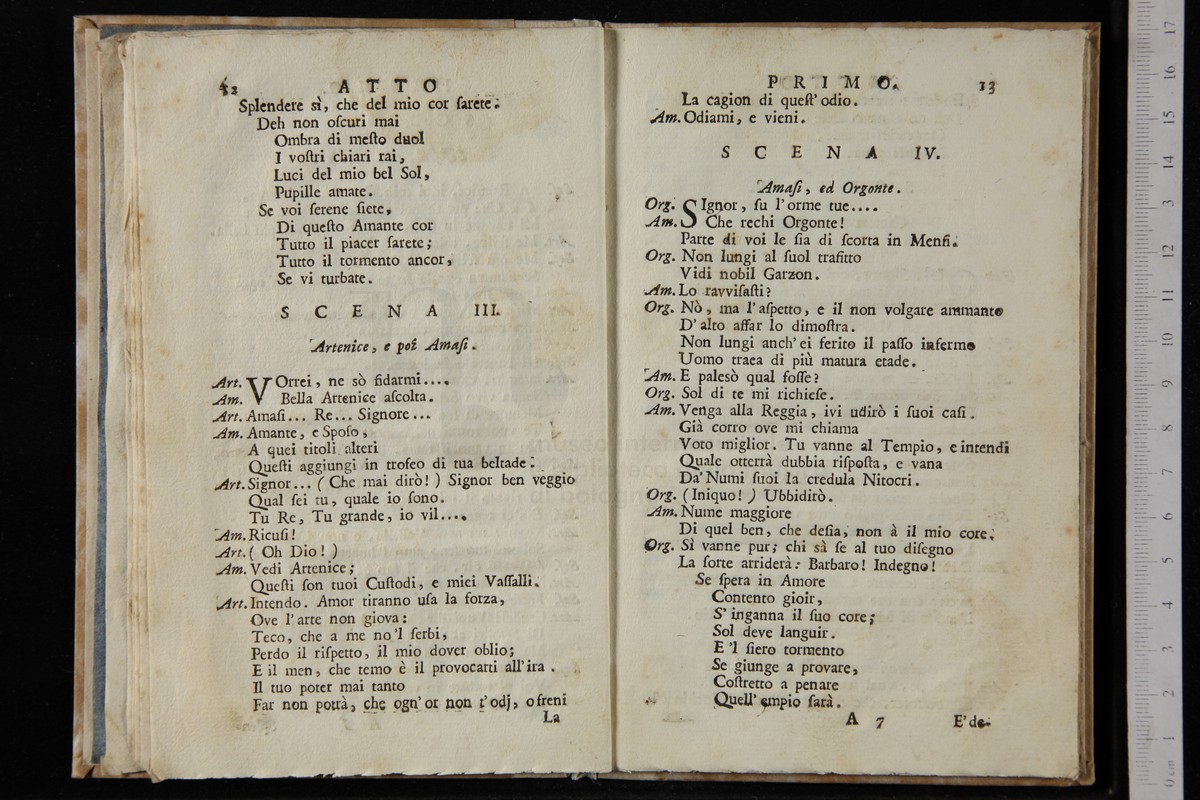 12 ATTO
Splendere sì, che del mio cor ſarete.
Deh non oſcuri mai
Ombra di meſto duol
I voſtri chiari rai,
Luci del mio bel Sol,
Pupille amate.
Se voi ſerene ſiete,
Di queſto Amante cor
Tutto il piacer ſarete;
Tutto il tormento ancor,
Se vi turbate.
SCENA III.
Artenice, e poi Amaſi.
Art. VOrrei, ne sò fidarmi....
Am. Bella Artenice aſcolta.
Art. Amaſi... Re... Signore...
Am. Amante, e Spoſo,
A quei titoli alteri
Queſti aggiungi in trofeo di tua beltade.
Art. Signor... (Che mai dirò!) Signor ben veggio
Qual ſei tu, quale io ſono.
Tu Re, Tu grande, io vil....
Am. Ricuſi!
Art. (Oh Dio!)
Am. Vedi Artenice;
Queſti ſon tuoi Cuſtodi, e miei Vaſſalli.
Art. Intendo. Amor tiranno uſa la forza,
Ove l'arte non giova:
Teco, che a me no'l ſerbi,
Perdo il riſpetto, il mio dover oblio;
E il men, che temo è il provocarti all'ira.
Il tuo poter mai tanto
Far non potrà, che ogn'or non t'odj, o freni
La
PRIMO. 13
La cagion di queſt'odio.
Am. Odiami, e vieni.
SCENA IV.
Amaſi, ed Orgonte.
Org. SIgnor, ſu l'orme tue....
Am. Che rechi Orgonte!
Parte di voi le ſia di ſcorta in Menfi.
Org. Non lungi al ſuol trafitto
Vidi nobil Garzon.
Am. Lo ravviſaſti?
Org. Nò, ma l'aſpetto, e il non volgare ammanto
D'alto affar lo dimoſtra.
Non lungi anch'ei ferito il paſſo infermo
Uomo traea di più matura etade.
Am. E palesò qual foſſe?
Org. Sol di te mi richieſe.
Am. Venga alla Reggia, ivi udirò i ſuoi caſi.
Già corro ove mi chiama
Voto miglior. Tu vanne al Tempio, e intendi
Quale otterrà dubbia riſpoſta, e vana
Da'Numi ſuoi la credula Nitocri.
Org. (Iniquo!) Ubbidirò.
Am. Nume maggiore
Di quel ben, che deſia, non à il mio core.
Org. Sì vanne pur; chi sà ſe al tuo diſegno
La ſorte arriderà: Barbaro! Indegno!
Se ſpera in Amore
Contento gioir,
S'inganna il ſuo core;
Sol deve languir.
E 'l fiero tormento
Se giunge a provare,
Coſtretto a penare
Quell'empio ſarà.
A 7 E'de-